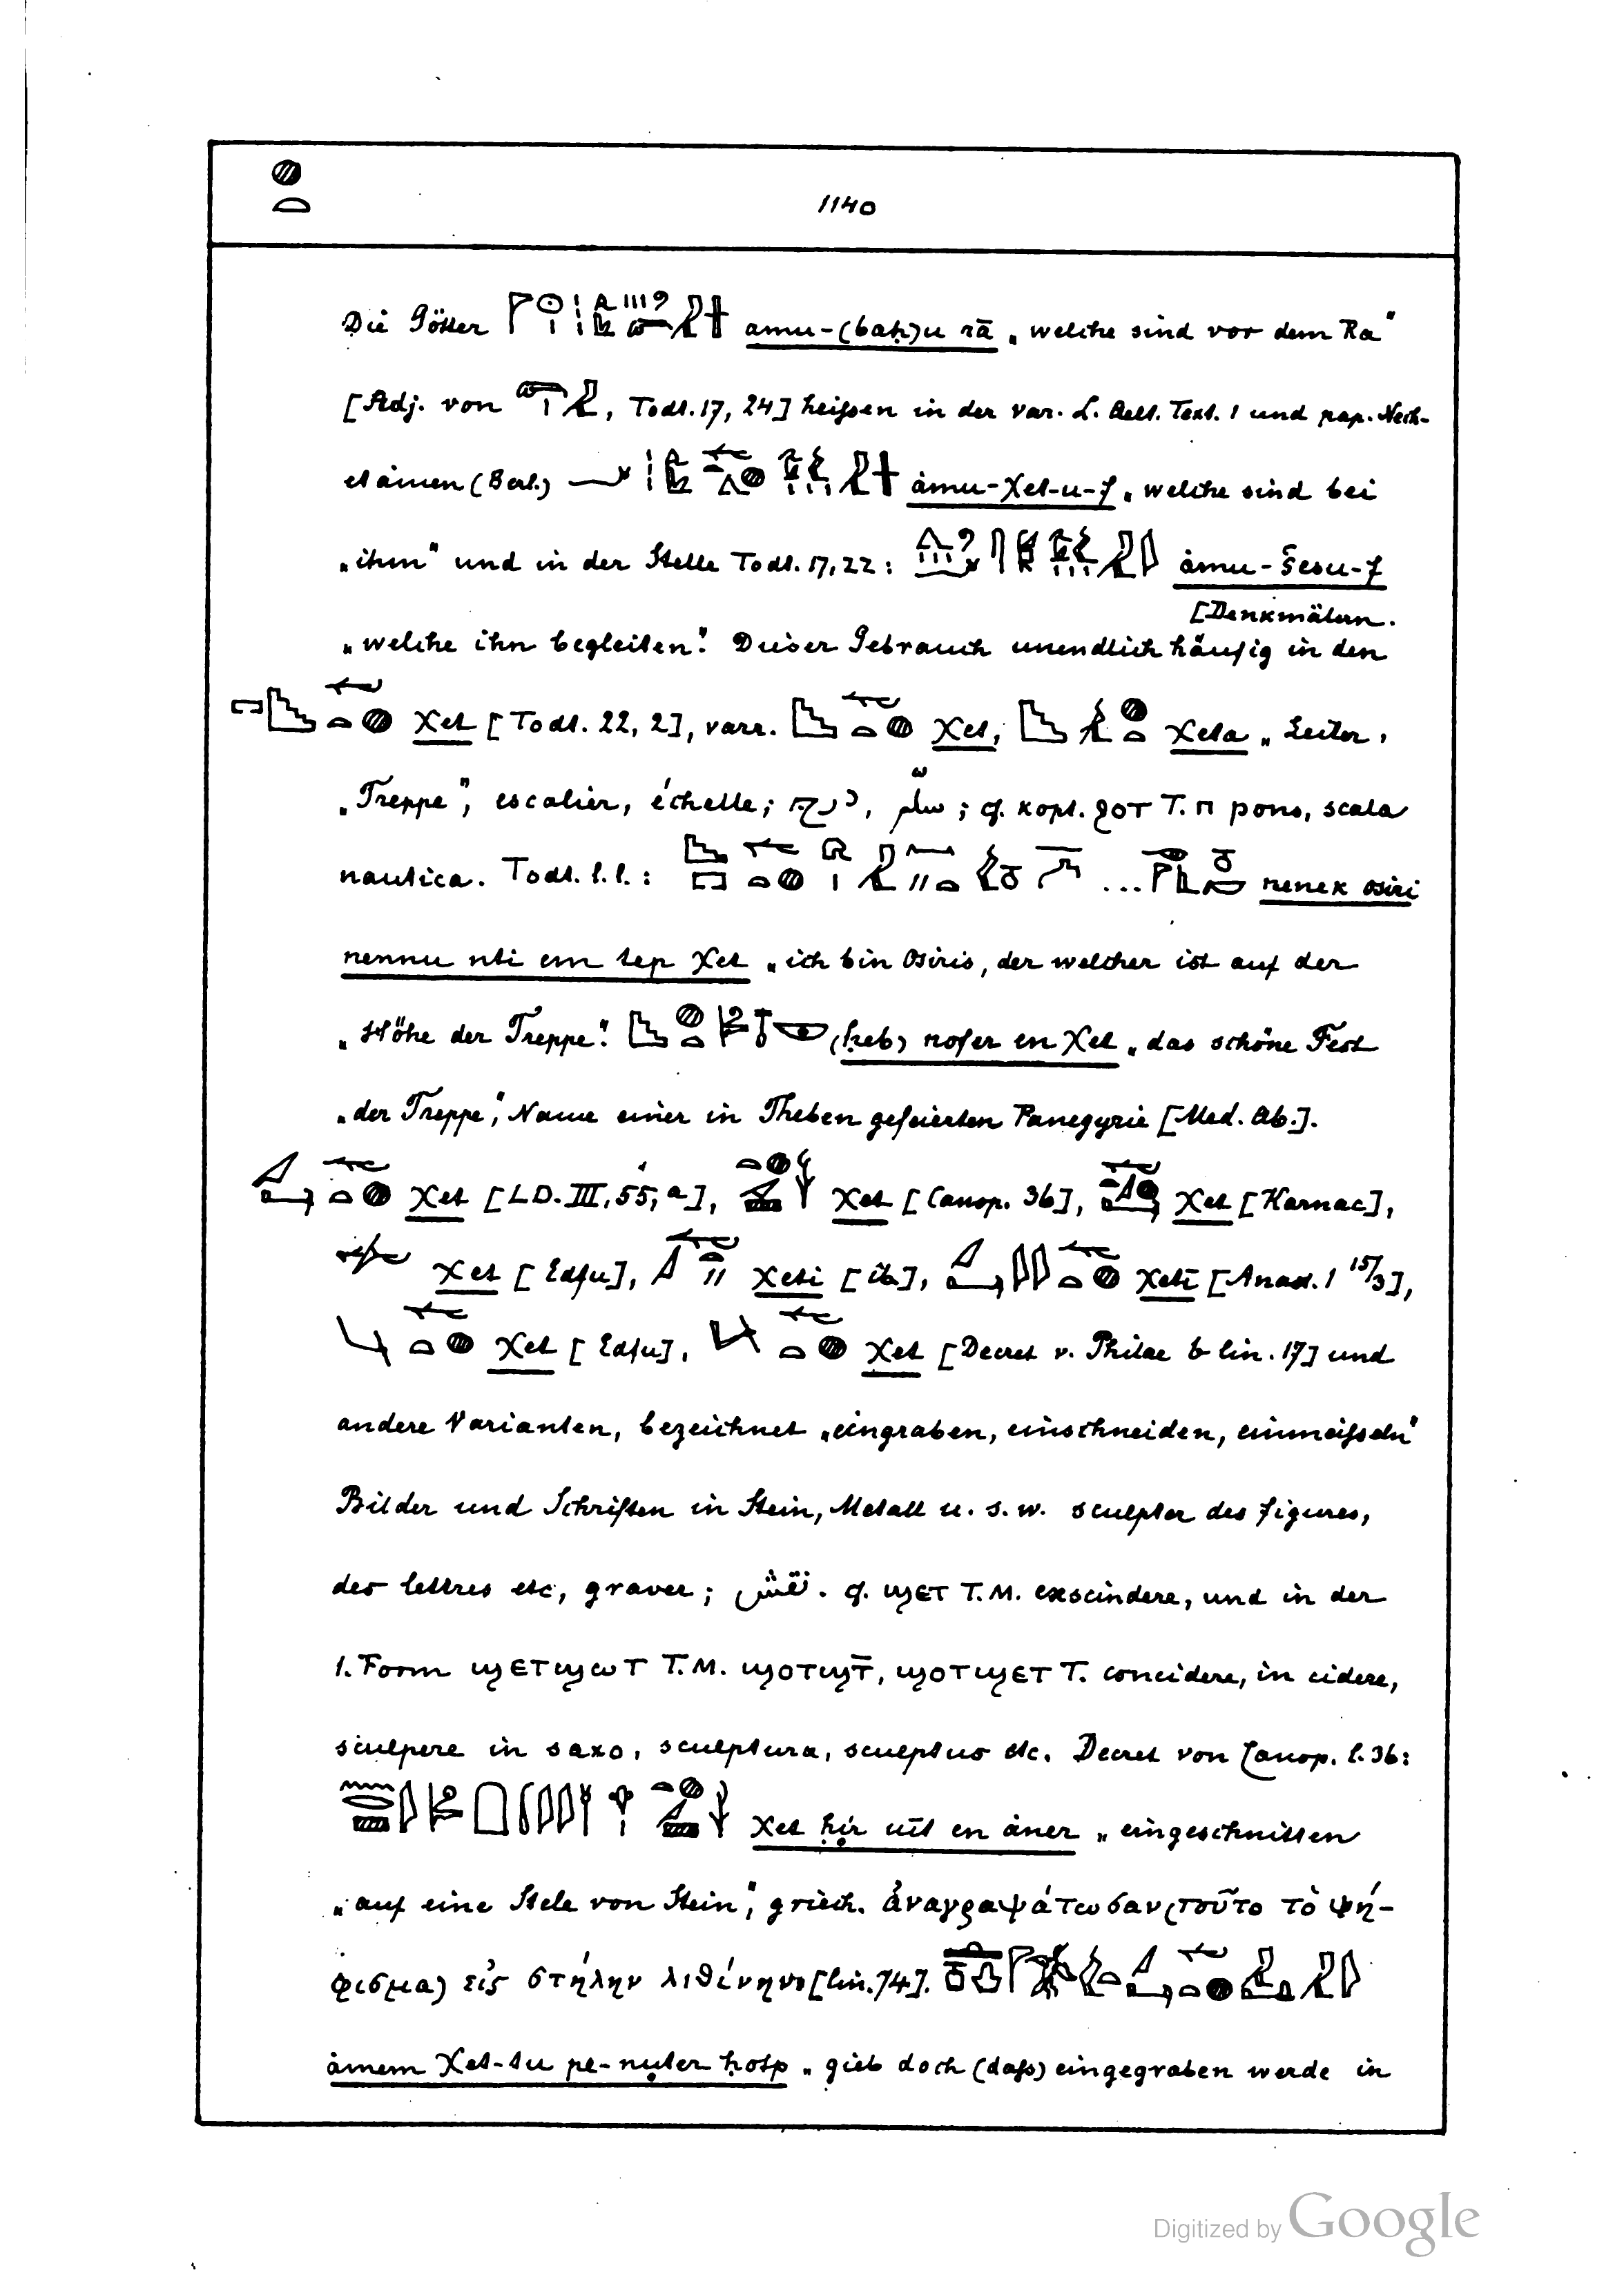 1140
Die Götter amu-(baḥ)u rā „welche sind vor dem Ra"
[Adj. von , Todt. 17, 24] heißen in der var. L. Aelt. Text. 1 und pap. Nech-
et åmen (Berl.) åmu-χet-u-f „welche sind bei
„ihm" und in der Stelle Todt. 17, 22: åmu-šesu-f
[Denkmälern.
„welche ihn begleiten". Dieser Gebrauch unendlich häufig in den
χet [Todt. 22, 2], varr. χet, χeta „Leiter,
„Treppe", escalier, échelle; درج, سلّم; cf. kopt. ϩⲟⲧ T. ⲡ pons, scala
nautica. Todt. l. l.: ... nenek osiri
nennu nti em tep χet „ich bin Osiris, der welcher ist auf der
„Höhe der Treppe". (ḥeb) nofer en χet „das schöne Fest
„der Treppe", Name einer in Theben gefeierten Panegyrie [Med. Ab.].
χet [LD. III, 55, a], χet [Canop. 36], χet [Karnac],
χet [Edfu], χeti [ib], χetī [Anast. 1 15/3],
χet [Edfu], χet [Decret v. Philae b lin. 17] und
andere Varianten, bezeichnet „eingraben, einschneiden, einmeißeln"
Bilder und Schriften in Stein, Metall u. s. w. sculpter des figures,
des lettres etc, graver; نقش. cf. ϣⲉⲧ T. M. exscindere, und in der
1. Form ϣⲉⲧϣⲱⲧ T. M. ϣⲟⲧϣⲧ̄, ϣⲟⲧϣⲉⲧ T. concidere, in cidere,
sculpere in saxo, sculptura, sculptus etc. Decret von Canop. l. 36:
χet ḥir uīt en åner „eingeschnitten
„auf eine Stele von Stein", griech. ἀναγραψάτωσαν (τοῦτο τὸ ψή-
φισμα) εἰς στήλην λιθίνην [lin. 74].
åmem χet-tu pe-nuter ḥotp „gieb doch (daß) eingegraben werde in
Digitized by Google